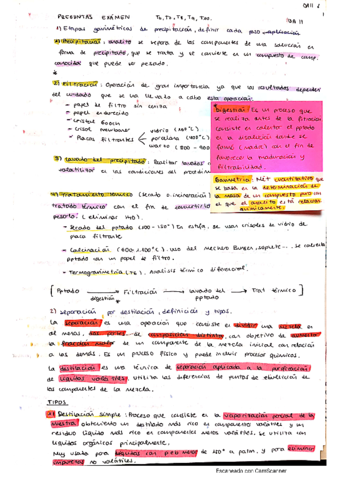 PREGUNTAS EXÁMEN T6, T7, T8, T9, T10.
1) Etapas gravimétricas de precipitación, definir cada paso, aplicación
1) Precipitación: analito se separa de los componentes de una solución en
forma de precipitado, que se trata y se convierte en un compuesto de comp.
conocida que puede ser pesado.
2) Filtración: Operación de gran importancia ya que los resultados dependen
del cuidado que se ha llevado a cabo esta operación.
- papel de filtro sin ceniza
- papel endurecido
- Crisol Gooch
- Crisol
- Placa filtrante
vidrio
porcelana
cuarzo
Digestión: Es un proceso que
se realiza antes de la filtración
consiste en calentar el pptado
en la disolución donde se
formó (madre) con el fin de
favorecer la maduración y
filtrabilidad.
3) Lavado del precipitado: Realizar
volatilizar en las condiciones del
Gravimetría: Mét cuantitativo que
se basa en la determinación de
la masa de un compuesto puro con
el que el analito está relacionado
4) Tratamiento térmico (secado o incineración)
tratado térmico con el fin de convertirlo
pesarlo (eliminar H2O).
- Secado del pptado (100-150°) En estufa, se usan crisoles de vidrio de
placa filtrante
- Calcinación uso del Mechero Bunsen, soporte... Se calcina
pptado con un papel de filtro.
- Termogravimetría Análisis térmico diferencial.
[ Pptado → Filtración → Lavado del pptado → Trat térmico ]
digestión
2) Separación por destilación, definición y tipos.
La separación es una operación que consiste en dividir una mezcla en
al menos, dos partes de composición distinta con objetivo de aumentar
la fracción molar de un componente de la mezcla inicial con relación
a los demás. Es un proceso físico y puede incluir procesos químicos.
La destilación es una técnica de separación aplicada a la purificación
de líquidos volátiles. Utiliza las diferencias de puntos de ebullición en
los componentes de la mezcla.
TIPOS
1) Destilación simple: Proceso que consiste en la vaporización parcial de la
muestra obteniendo un destilado más rico en componentes volátiles y un
residuo líquido más rico en componentes menos volátiles. Se utiliza con
líquidos orgánicos principalmente.
Muy usado para líquidos con p.eb menor de 150° a 1 atm, y para eliminar
impurezas no volátiles.
Escaneado con CamScanner